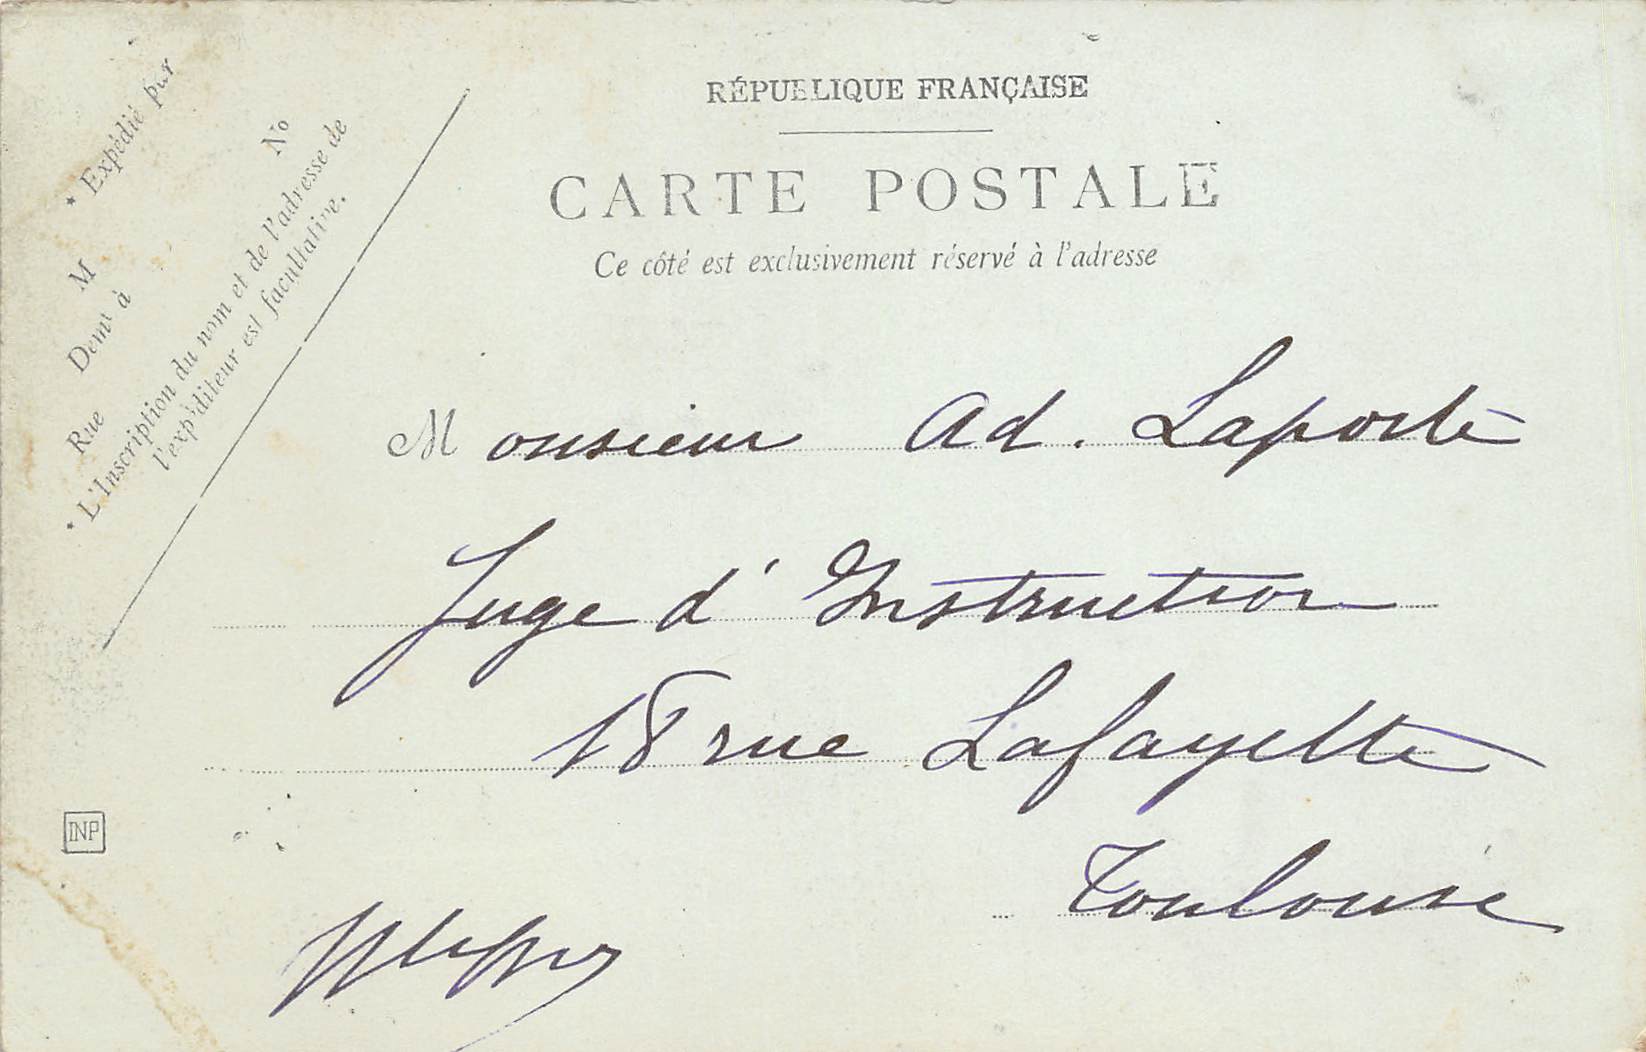 RÉPUBLIQUE FRANÇAISE
CARTE POSTALE
Ce côté est exclusivement réservé à l'adresse
* Expédié par
M
Demt à
Rue
No
* L'Inscription du nom et de l'adresse de
l'expéditeur est facultative.
Monsieur Ad. Laporte
Juge d'Instruction
18 rue Lafayette
Toulouse
INP